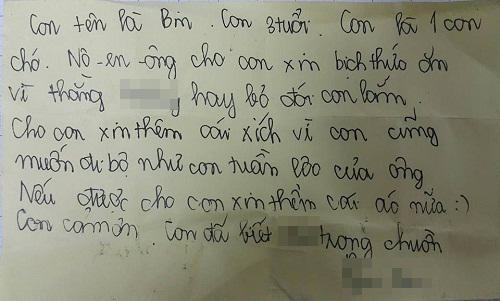 Con tên là Bin. Con 3 tuổi. Con là 1 con
chó. Nô-en-ông cho con xin bịch thức ăn
vì thằng , hay bỏ đói con lắm,
Cho con xin thêm cái xích vì con cũng
muốn đi bộ như con tuần lộc của ông
Nếu được cho con xin thêm cái áo nữa :)
Con cảm ơn. Con đã trong chuồn